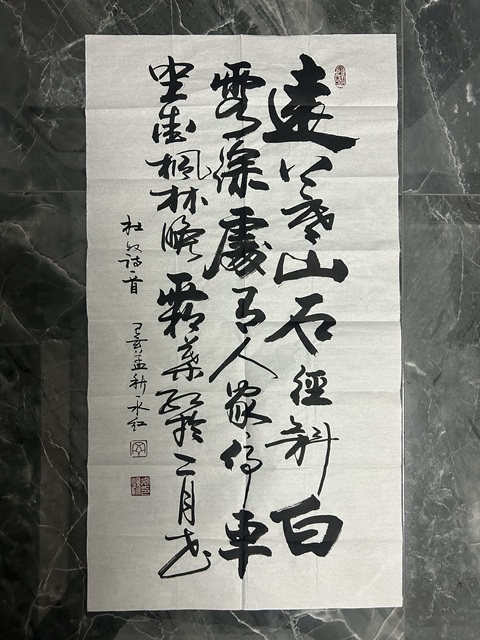 遠上寒山石徑斜白
雲深處有人家停車
坐愛楓林晚霜葉紅於二月花
杜牧詩一首